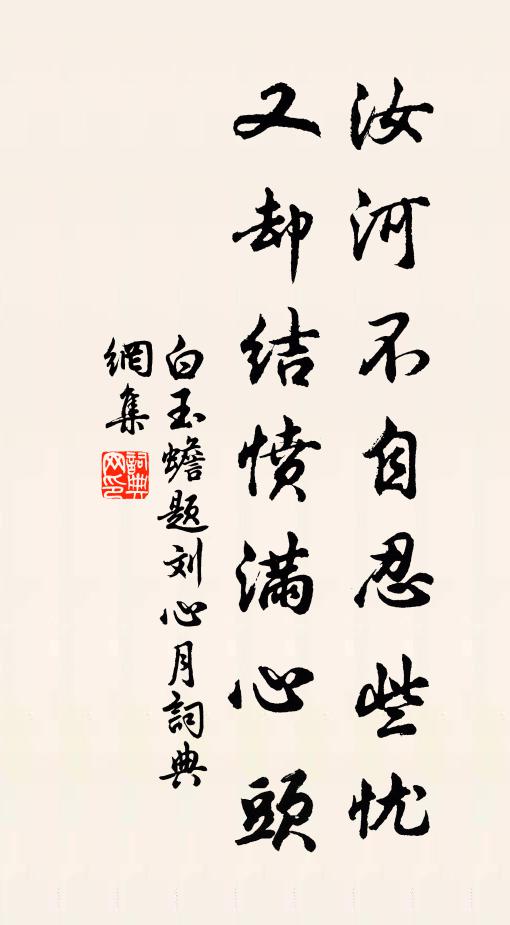 汝河不自忍些忧
又却结憤满心頭
白玉蟾题刘心月詞典
網集
詞典網印